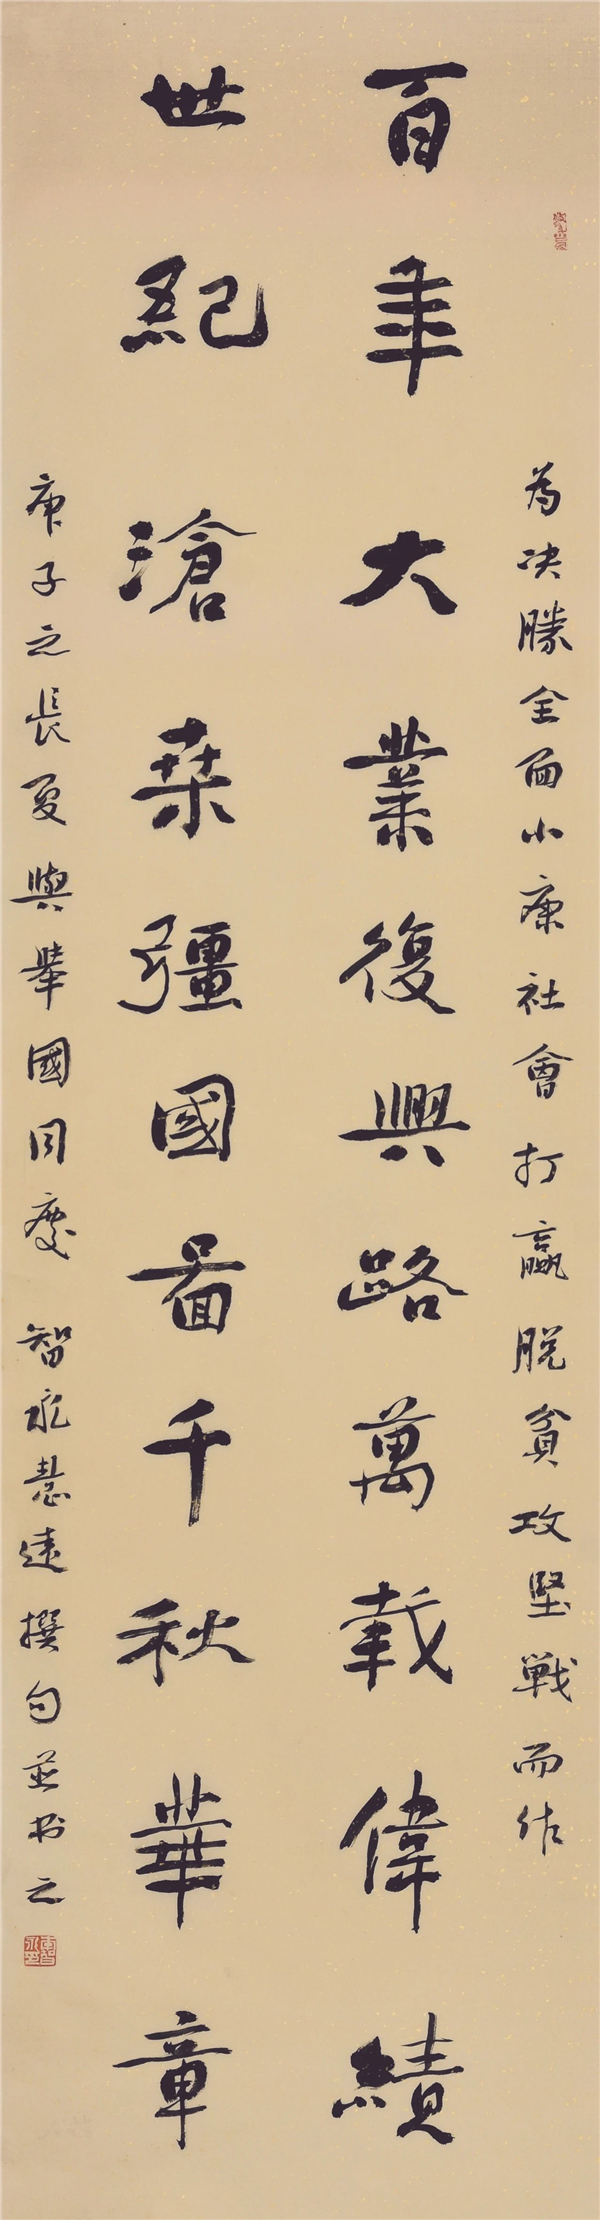 為决勝全面小康社會打贏脱貧攻堅戦而作
百年大業復興路萬載偉績
世紀滄桑彊國啚千秋華章
庚子之長夏與舉國同慶 智永慧遠撰句並书之